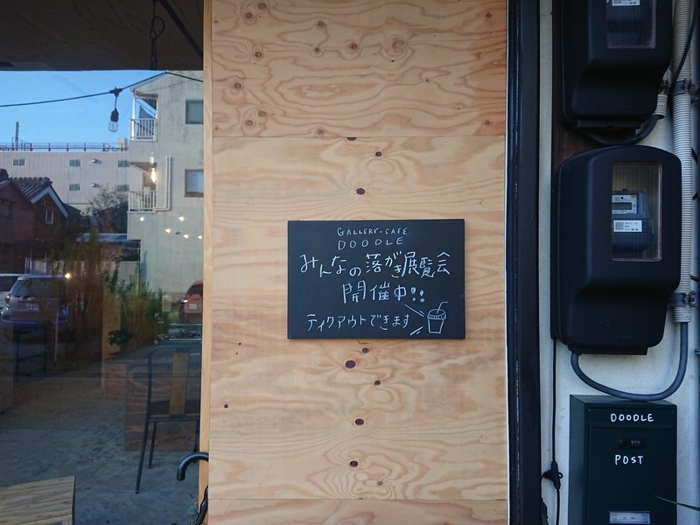 GALLERY・CAFE
DOODLE
みんなの落がき展覧会
開催中!!
テイクアウトできます
DOODLE
POST